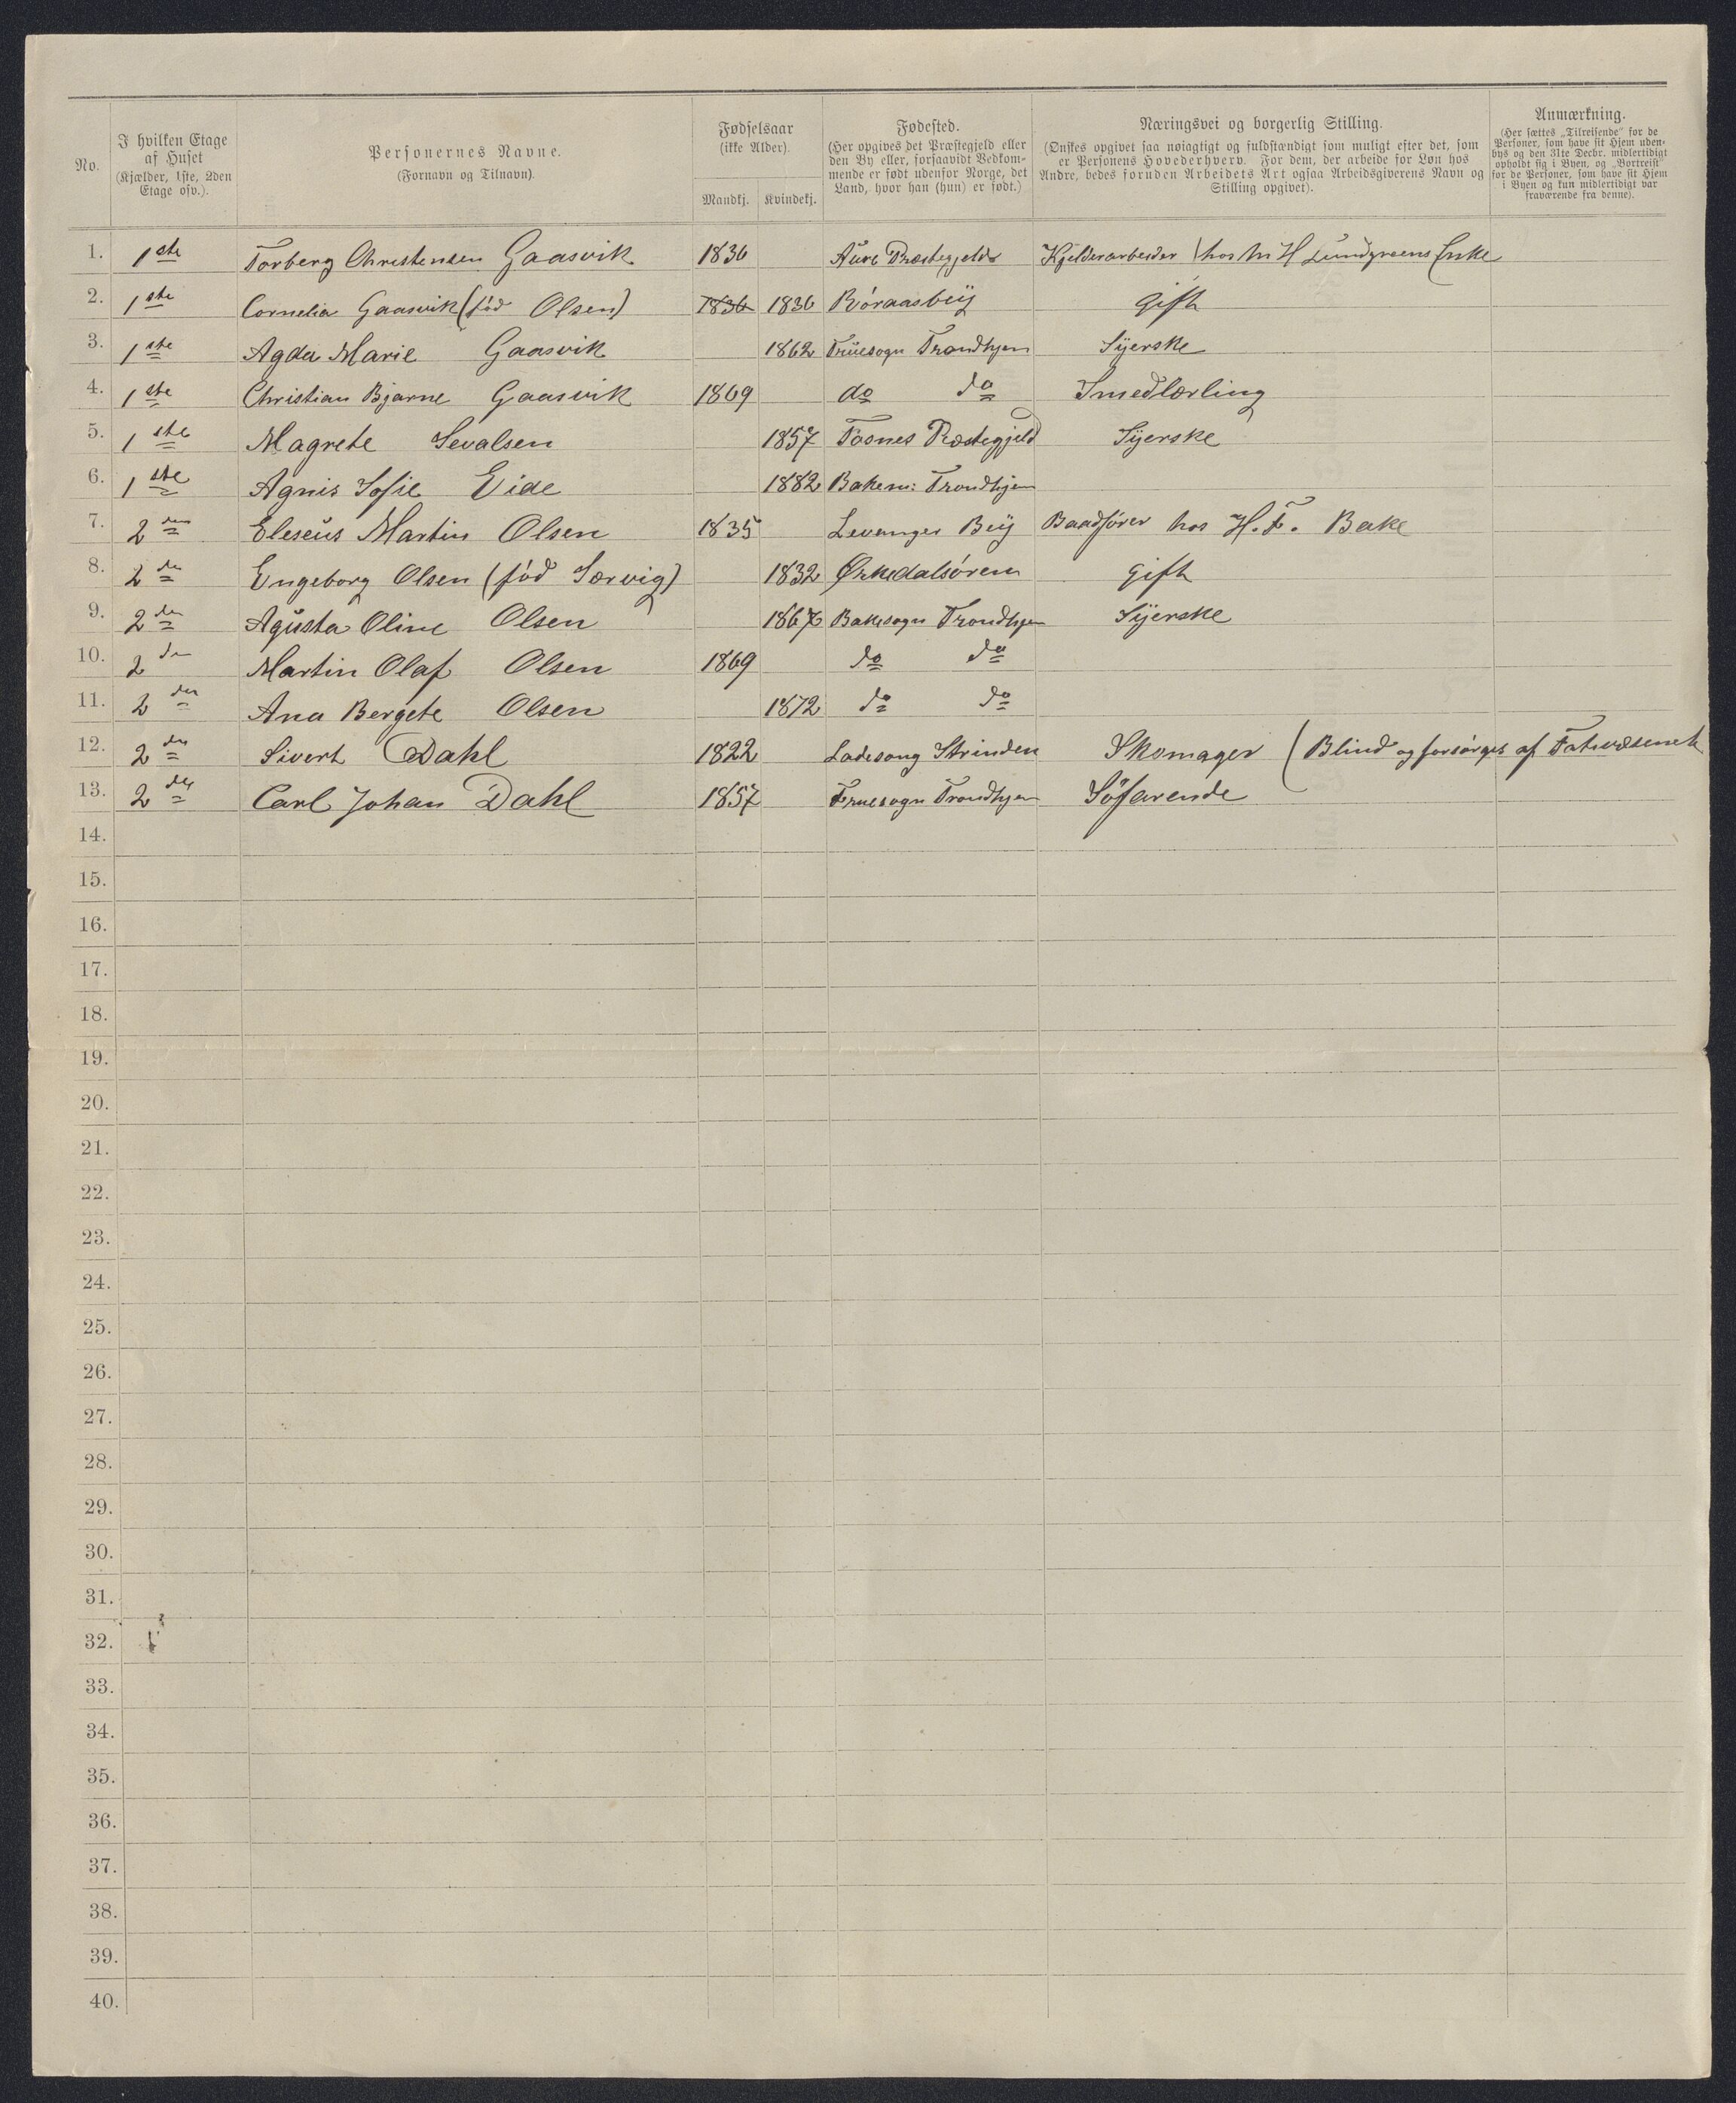 No.
I hvilken Etage
af Huset
(Kjælder, 1ste, 2den
Etage osv.).
Personernes Navne.
(Fornavn og Tilnavn).
Fødselsaar
(ikke Alder).
Mandkj. Kvindekj.
Fødested.
(Her opgives det Præstegjeld eller
den By eller, forsaavidt Vedkom-
mende er født udenfor Norge, det
Land, hvor han (hun) er født.)
Næringsvei og borgerlig Stilling.
(Ønskes opgivet saa nøiagtigt og fuldstændigt som muligt efter det, som
er Personens Hovederhverv. For dem, der arbeide for Løn hos
Andre, bedes foruden Arbeidets Art ogsaa Arbeidsgiverens Navn og
Stilling opgivet).
Anmærkning.
(Her sættes „Tilreisende" for de
Personer, som have sit Hjem uden-
bys og den 31te Decbr. midlertidigt
opholdt sig i Byen, og „Bortreist"
for de Personer, som have sit Hjem
i Byen og kun midlertidigt var
fraværende fra denne).
1. 1ste Torberg Christensen Gaasvik 1836 Aure Præstegjeld Kjelderarbeider (hos M H Lundgreens Enke
2. 1ste Cornelia Gaasvik (fód Olsen) 1836 1836 Róraasbÿ gift
3. 1ste Agda Marie Gaasvik 1862 Fruesogn Trondhjem Sÿerske
4. 1ste Christian Bjarne Gaasvik 1869 do do Smedlærling
5. 1ste Magrete Sevalsen 1857 Fosnes Præstegjeld Sÿerske
6. 1ste Agnis Sofie Eide 1882 Bakem: Trondhjem
7. 2den Eleseus Martin Olsen 1835 Levanger Bÿ Baadfører hos H. F. Bake
8. 2den Engeborg Olsen (fód Sørvig) 1832 Ørkedalsóren gift
9. 2den Agusta Oline Olsen 1867 Bakesogn Trondhjem Sÿerske
10. 2den Martin Olaf Olsen 1869 do do
11. 2den Ana Bergete Olsen 1872 do do
12. 2den Sivert Dahl 1822 Ladesong Strinden Skomager (Blind og forsórges af Fatvæsenet
13. 2den Carl Johan Dahl 1857 Fruesogn Trondhjem Söfarende
14.
15.
16.
17.
18.
19.
20.
21.
22.
23.
24.
25.
26.
27.
28.
29.
30.
31.
32.
33.
34.
35.
36.
37.
38.
39.
40.